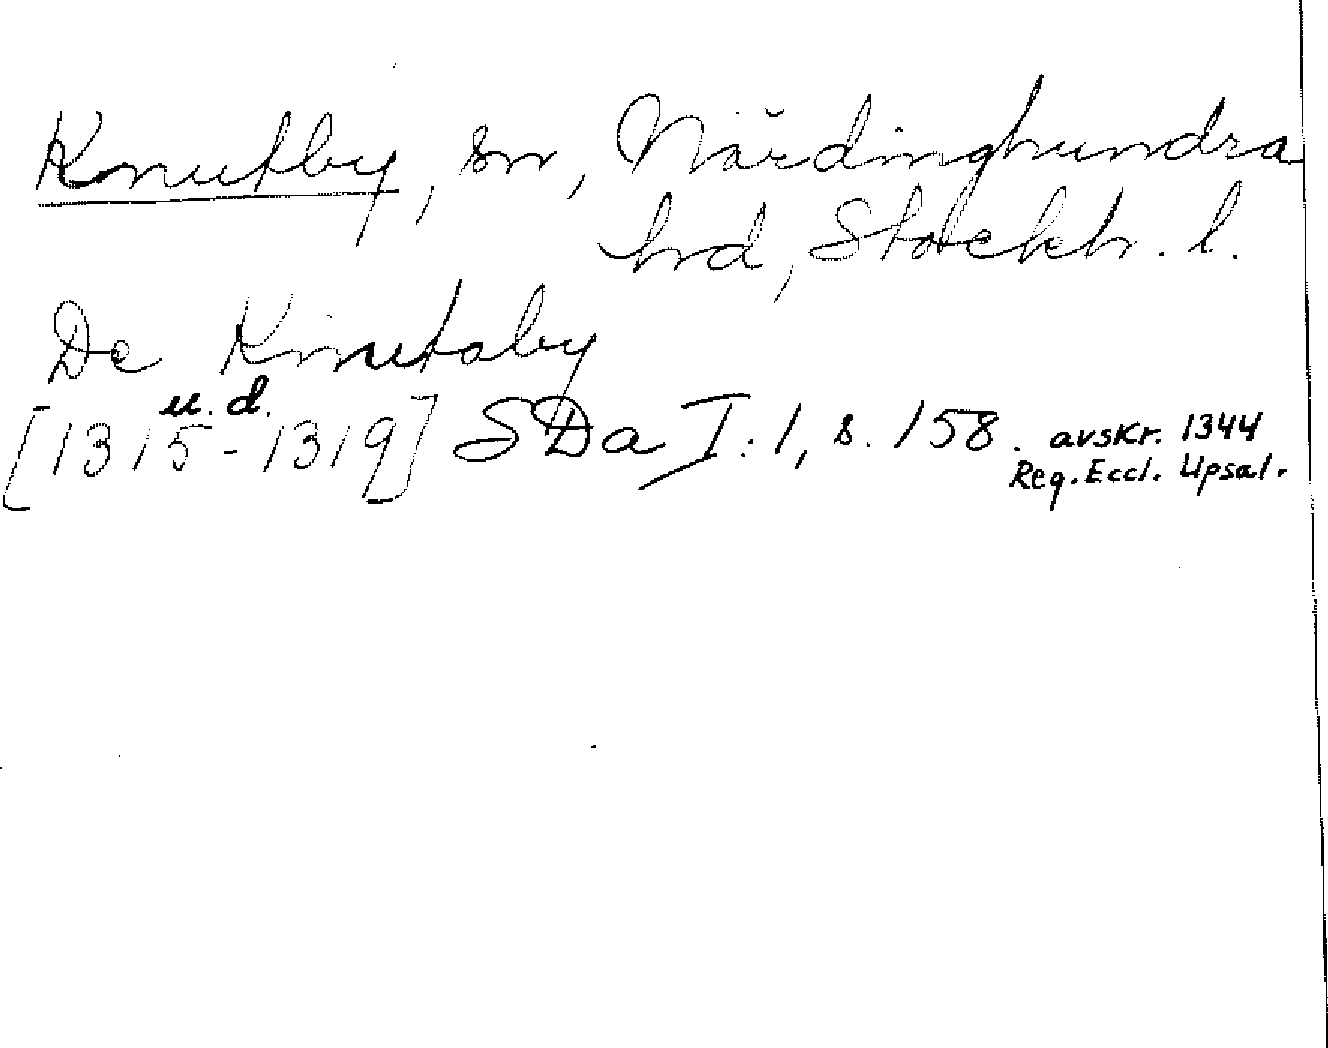 Knutby, sn, Närdinghundra
hrd, Stockh. l.
De Knutaby
u. d.
[1315-1319] SDa I:1, s. 158. avskr. 1344
Reg. Eccl. Upsal.